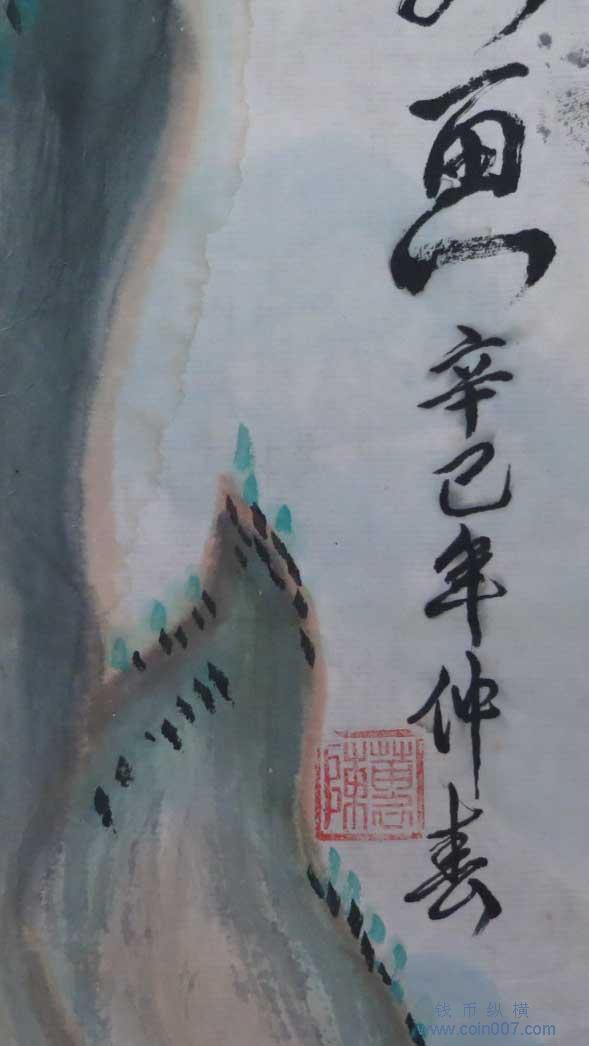 辛巳年仲春
陳
钱币纵横
www.coin007.com